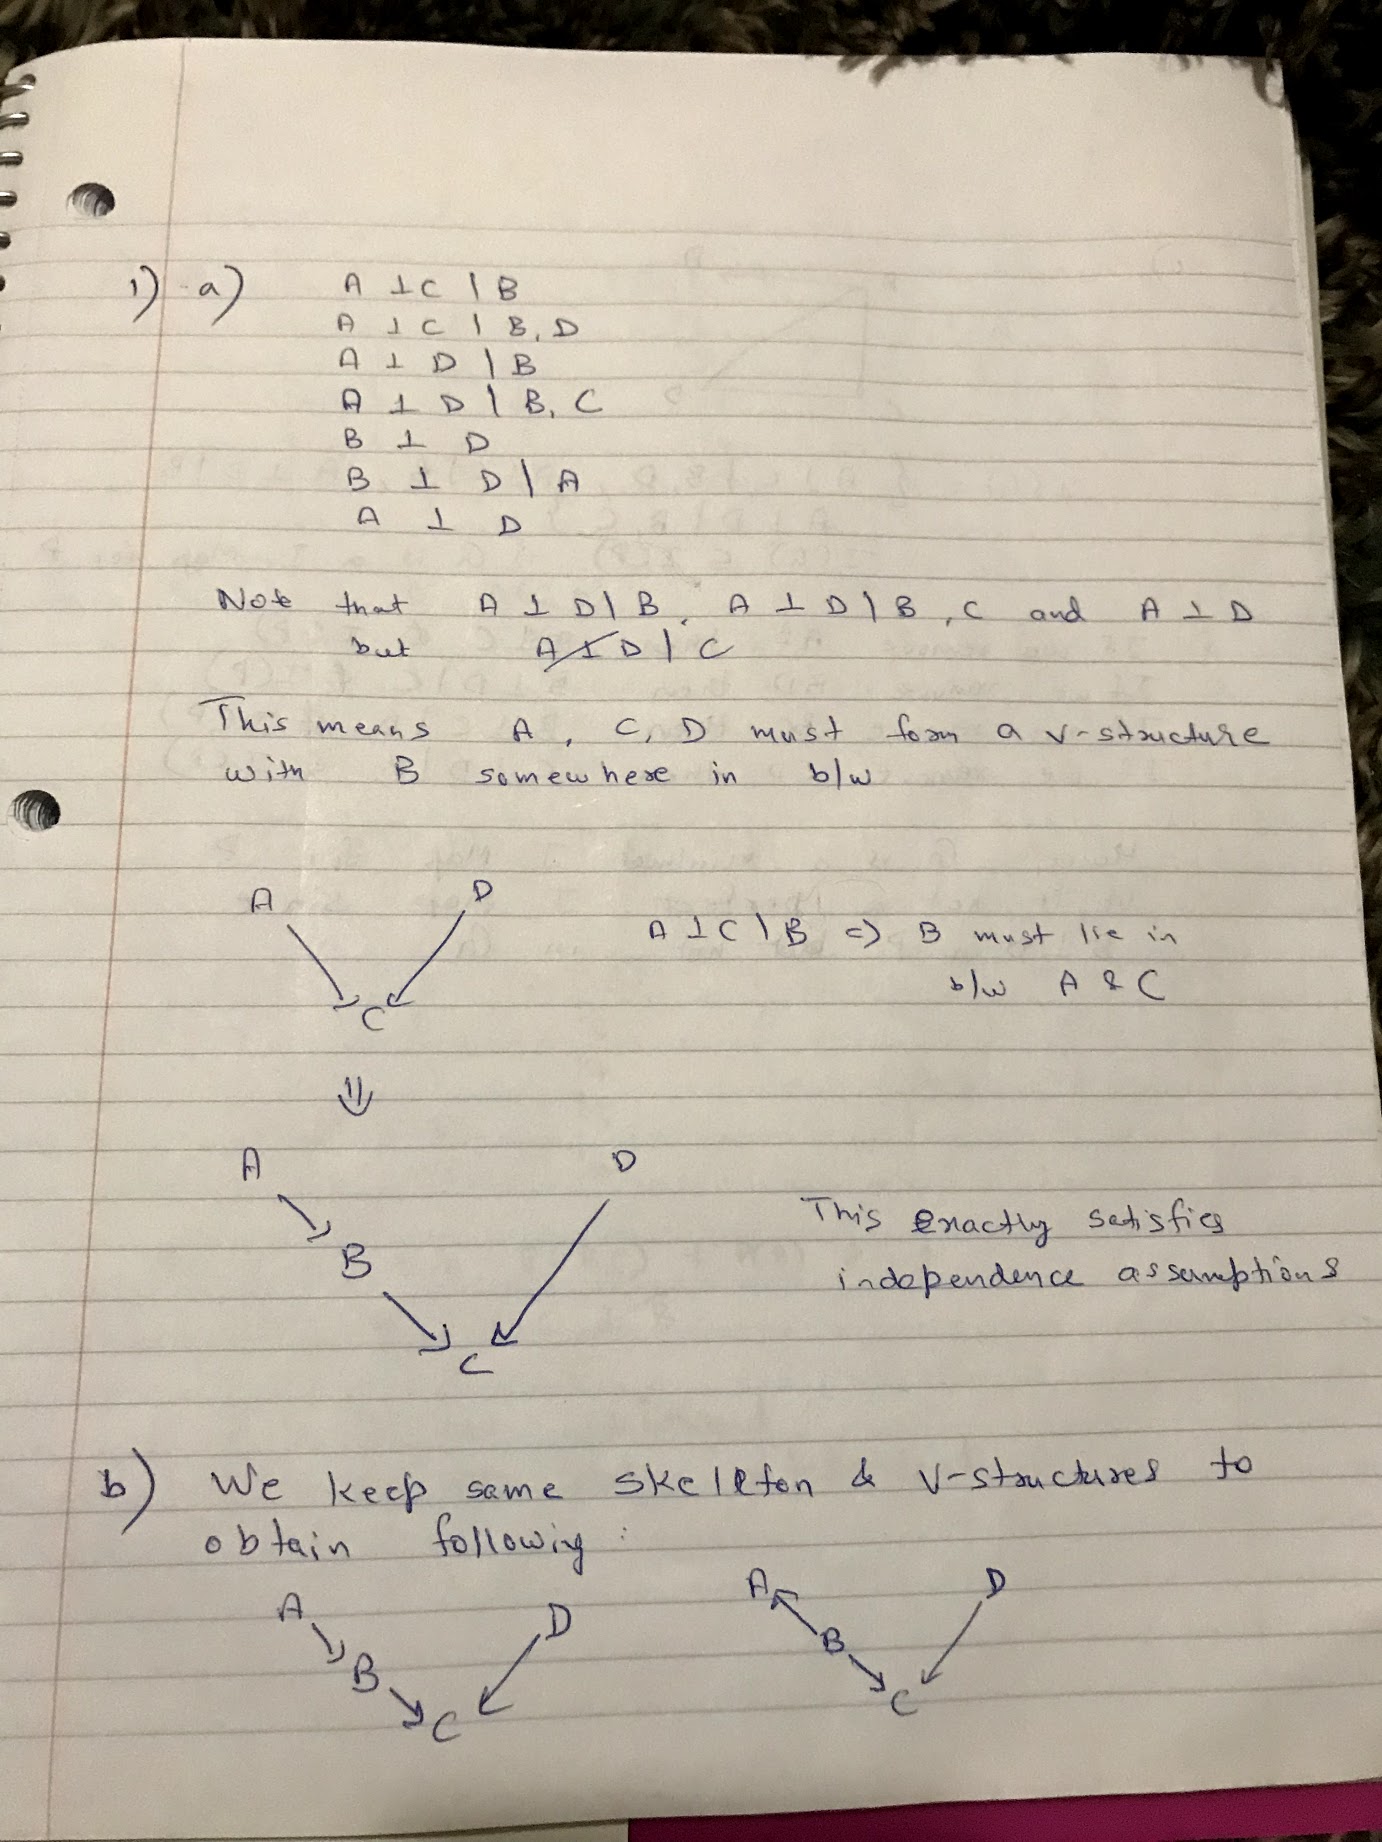 1) a) A ⊥ C | B
A ⊥ C | B, D
A ⊥ D | B
A ⊥ D | B, C
B ⊥ D
B ⊥ D | A
A ⊥ D
Note that A ⊥ D | B, A ⊥ D | B, C and A ⊥ D
but A ⊥̸ D | C
This means A, C, D must form a v-structure
with B somewhere in b/w
A D
A ⊥ C | B => B must lie in
b/w A & C
C
⇓
A D
This exactly satisfies
B
independence assumptions
C
b) We keep same skeleton & v-structures to
obtain followig :
A D A D
B B
C C